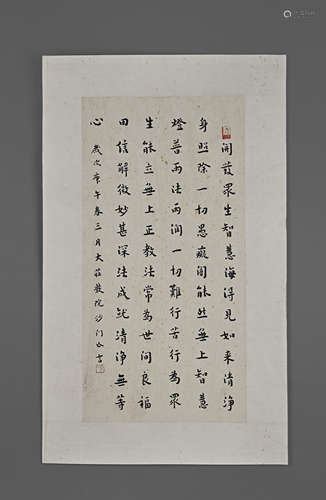 開發眾生智慧海得見如來清淨
身照除一切愚癡闇能然無上智慧
燈普雨法雨潤一切難行苦行為眾
生能立無上正教法常為世間良福
田信解微妙甚深法成就清淨無等
心 歲次庚午春三月大莊嚴院沙門